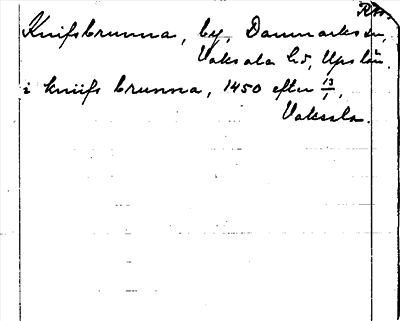 RA.
Knifsbrunna, by, Danmarks sn,
Vaksala hd, Ups län.
i kniifs brunna, 1450 efter 13/1,
Vaksala.